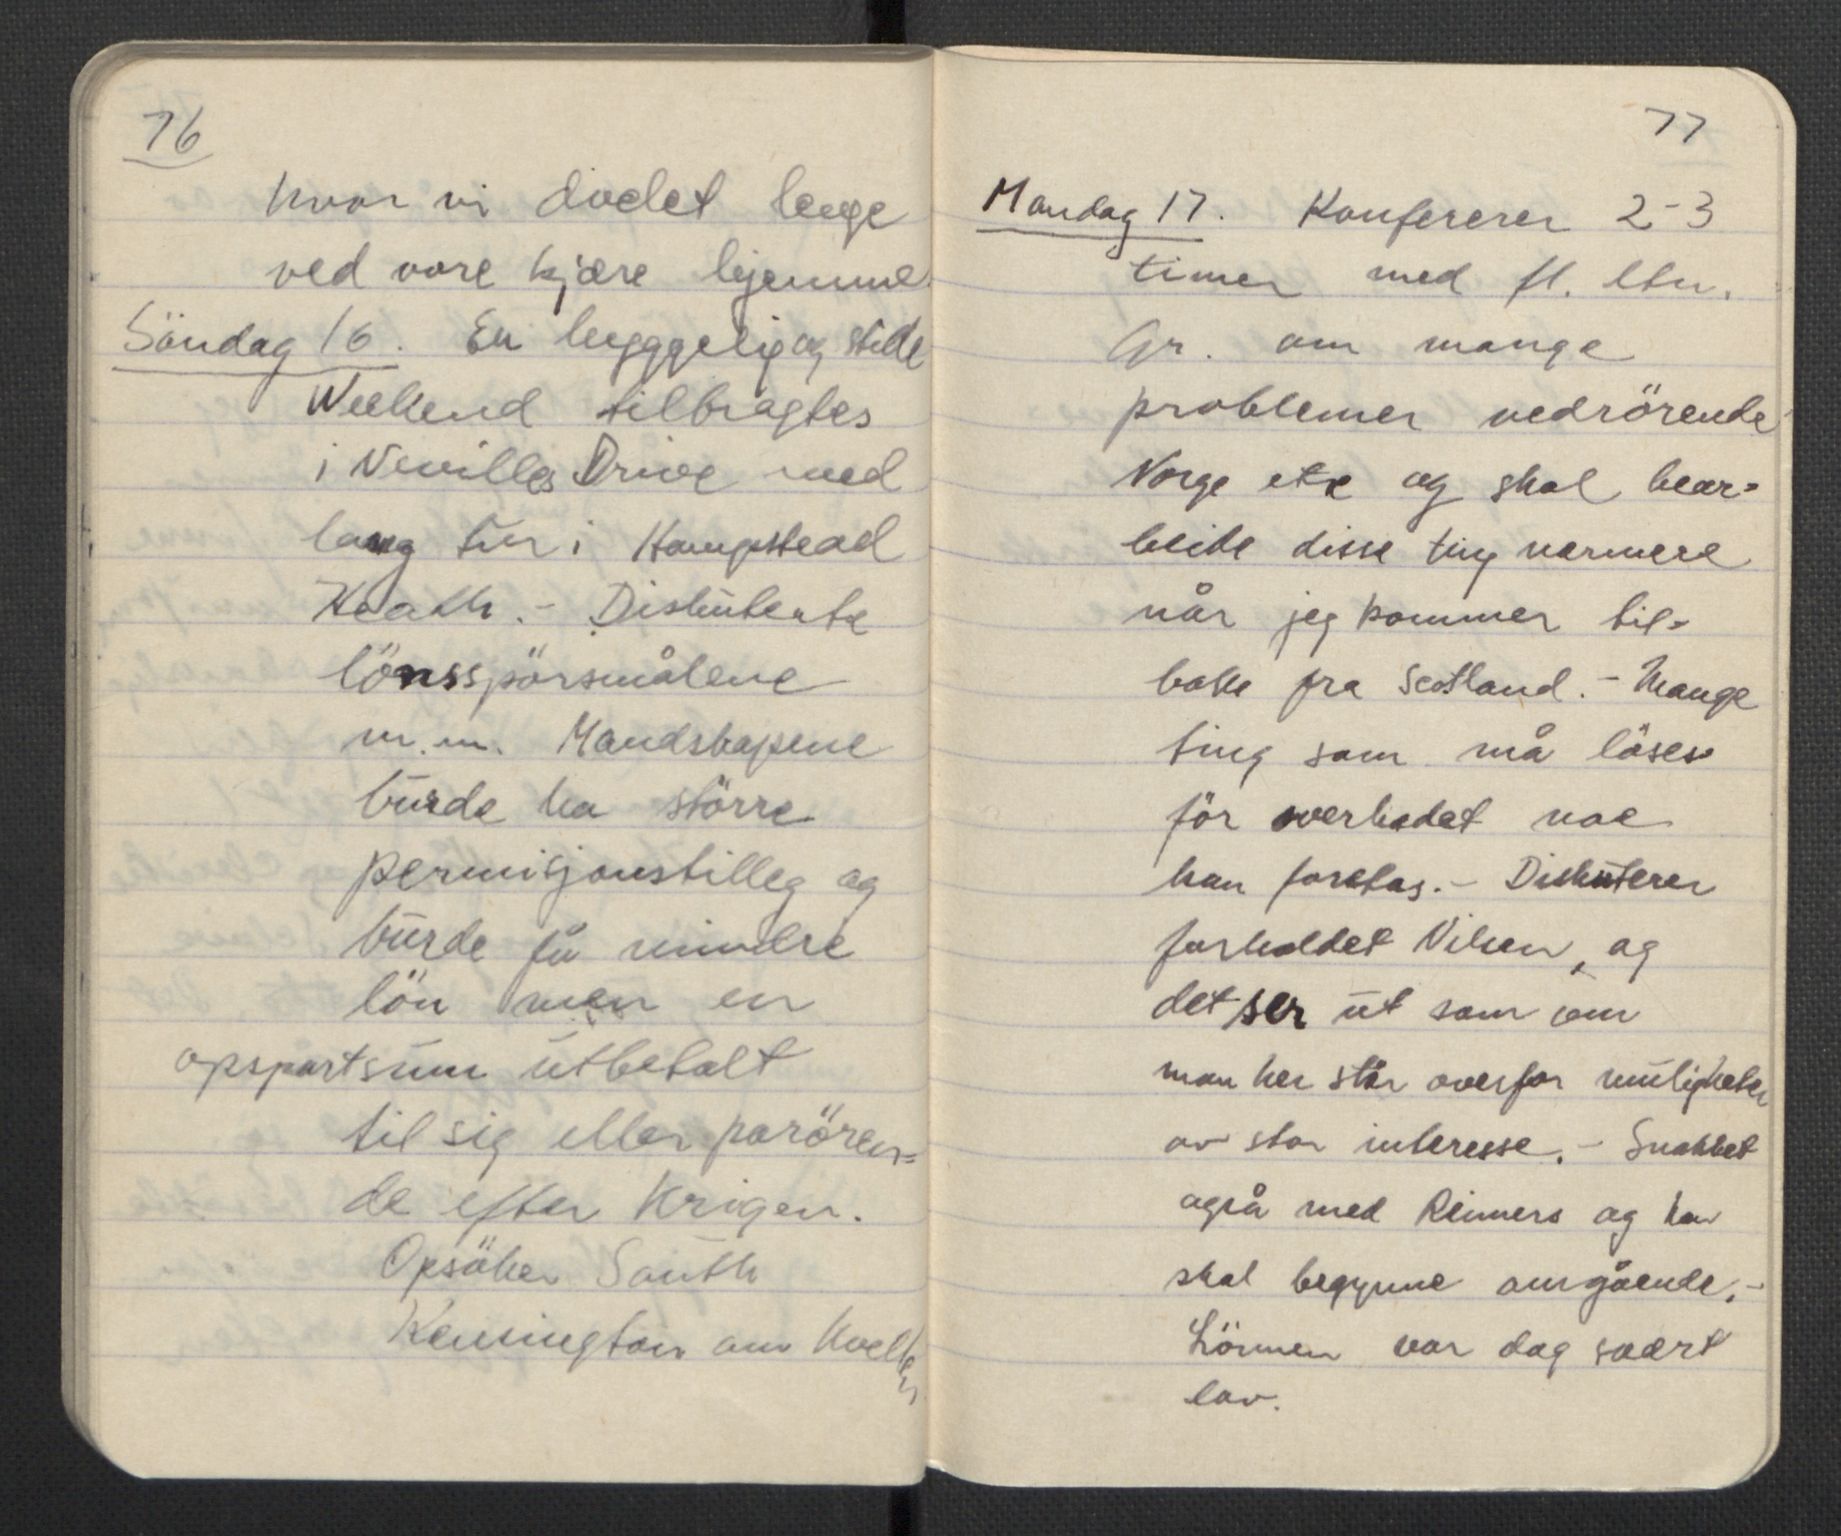 76
hvor vi dvelet lenge
ved våre kjære hjemme.
Söndag 16. En hyggelig og stille
Weekend tilbragtes
i Nevilles Drive med
lang tur i Hampstead
Heath. - Diskuterte
lönsspörsmålene
m.m. Mandskapene
burde ha större
permisjonstillegg og
burde få mindre
lön men en
opspartsum utbetalt
til sig eller pårören=
de efter krigen.
Opsöker South
Kensington om kvelden
77
Mandag 17. Konfererer 2-3
timer med fl. ltn.
Gr. om mange
problemer vedrörende
Norge etc og skal bear=
beide disse ting nermere
når jeg kommer til=
bake fra Scotland. - Mange
ting som må löses
för overhodet noe
kan foretas. - Diskuterer
forholdet Nilsen, og
det ser ut som om
man her står overfor muligheter
av stor interesse. - Snakket
også med Reimers og han
skal begynne omgående. -
Lönnen var dag svært
lav.